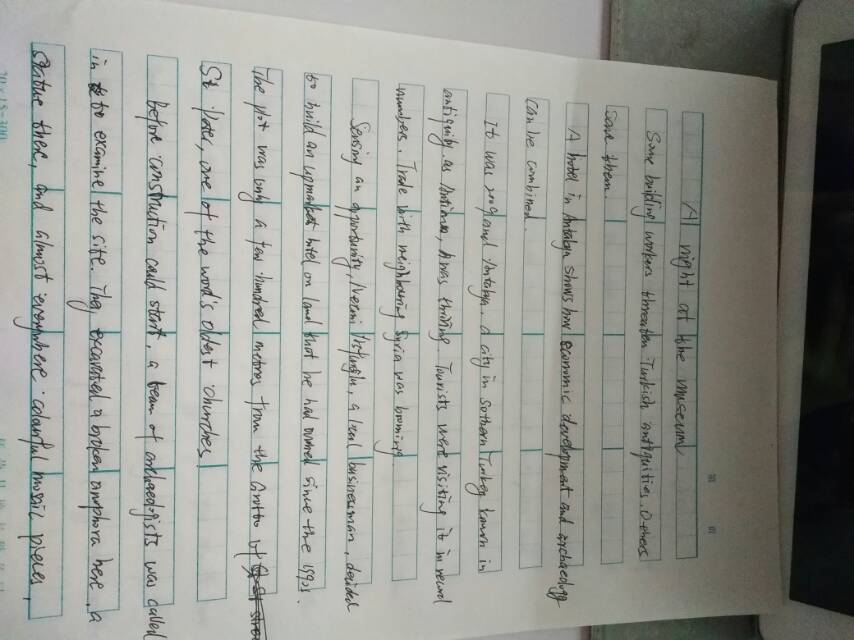 A night at the museum
Some building workers threaten Turkish antiquities. Others
save them.
A hotel in Antakya shows how economic development and archaeology
can be combined.
It was 2009 and Antakya, a city in sothern Turkey known in
antiquity as Antioch, was thriving. Tourists were visiting it in record
numbers. Trade with neighbouring Syria was booming
Sensing an opportunity, Necmi Asfuroglu, a local businessman, decided
to build an upmarket hotel on land that he had owned since the 1990s.
The plot was only a few hundred metres from the Grotto of
St Peter, one of the word's oldest churches
before construction could start, a team of archaeologists was called
in to examine the site. They excavated a broken amphora here, a
statue there, and almost everywhere colourful mosaic pieces,